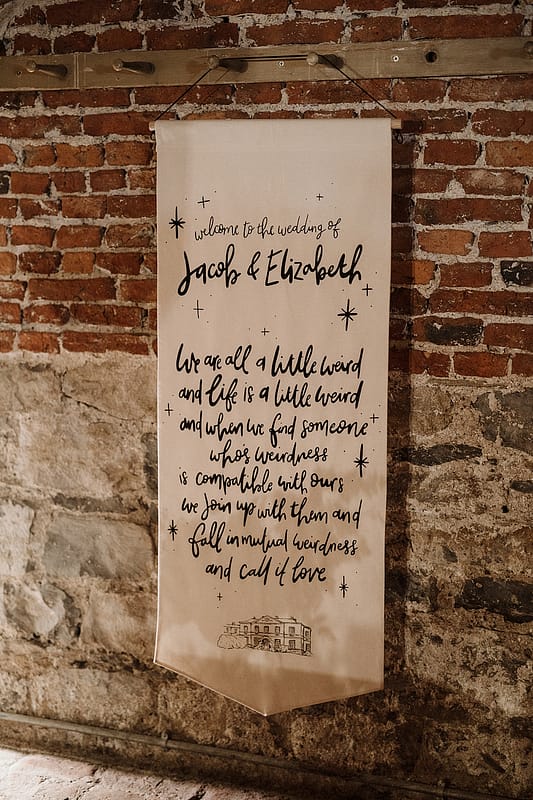 welcome to the wedding of
Jacob & Elizabeth
We are all a little weird
and life is a little weird
and when we find someone
who's weirdness
is compatible with ours
we join up with them and
fall in mutual weirdness
and call it love